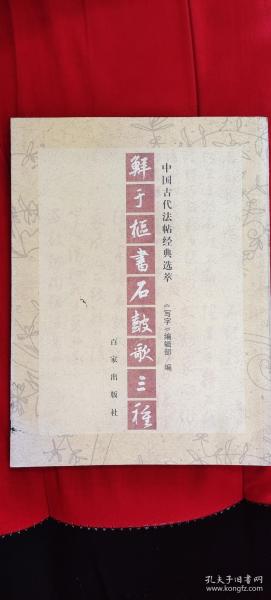 中国古代法帖经典选萃
鲜于樞書石鼓歌三種
《写字》编辑部 编
百家出版社
孔夫子旧书网
www.kongfz.com